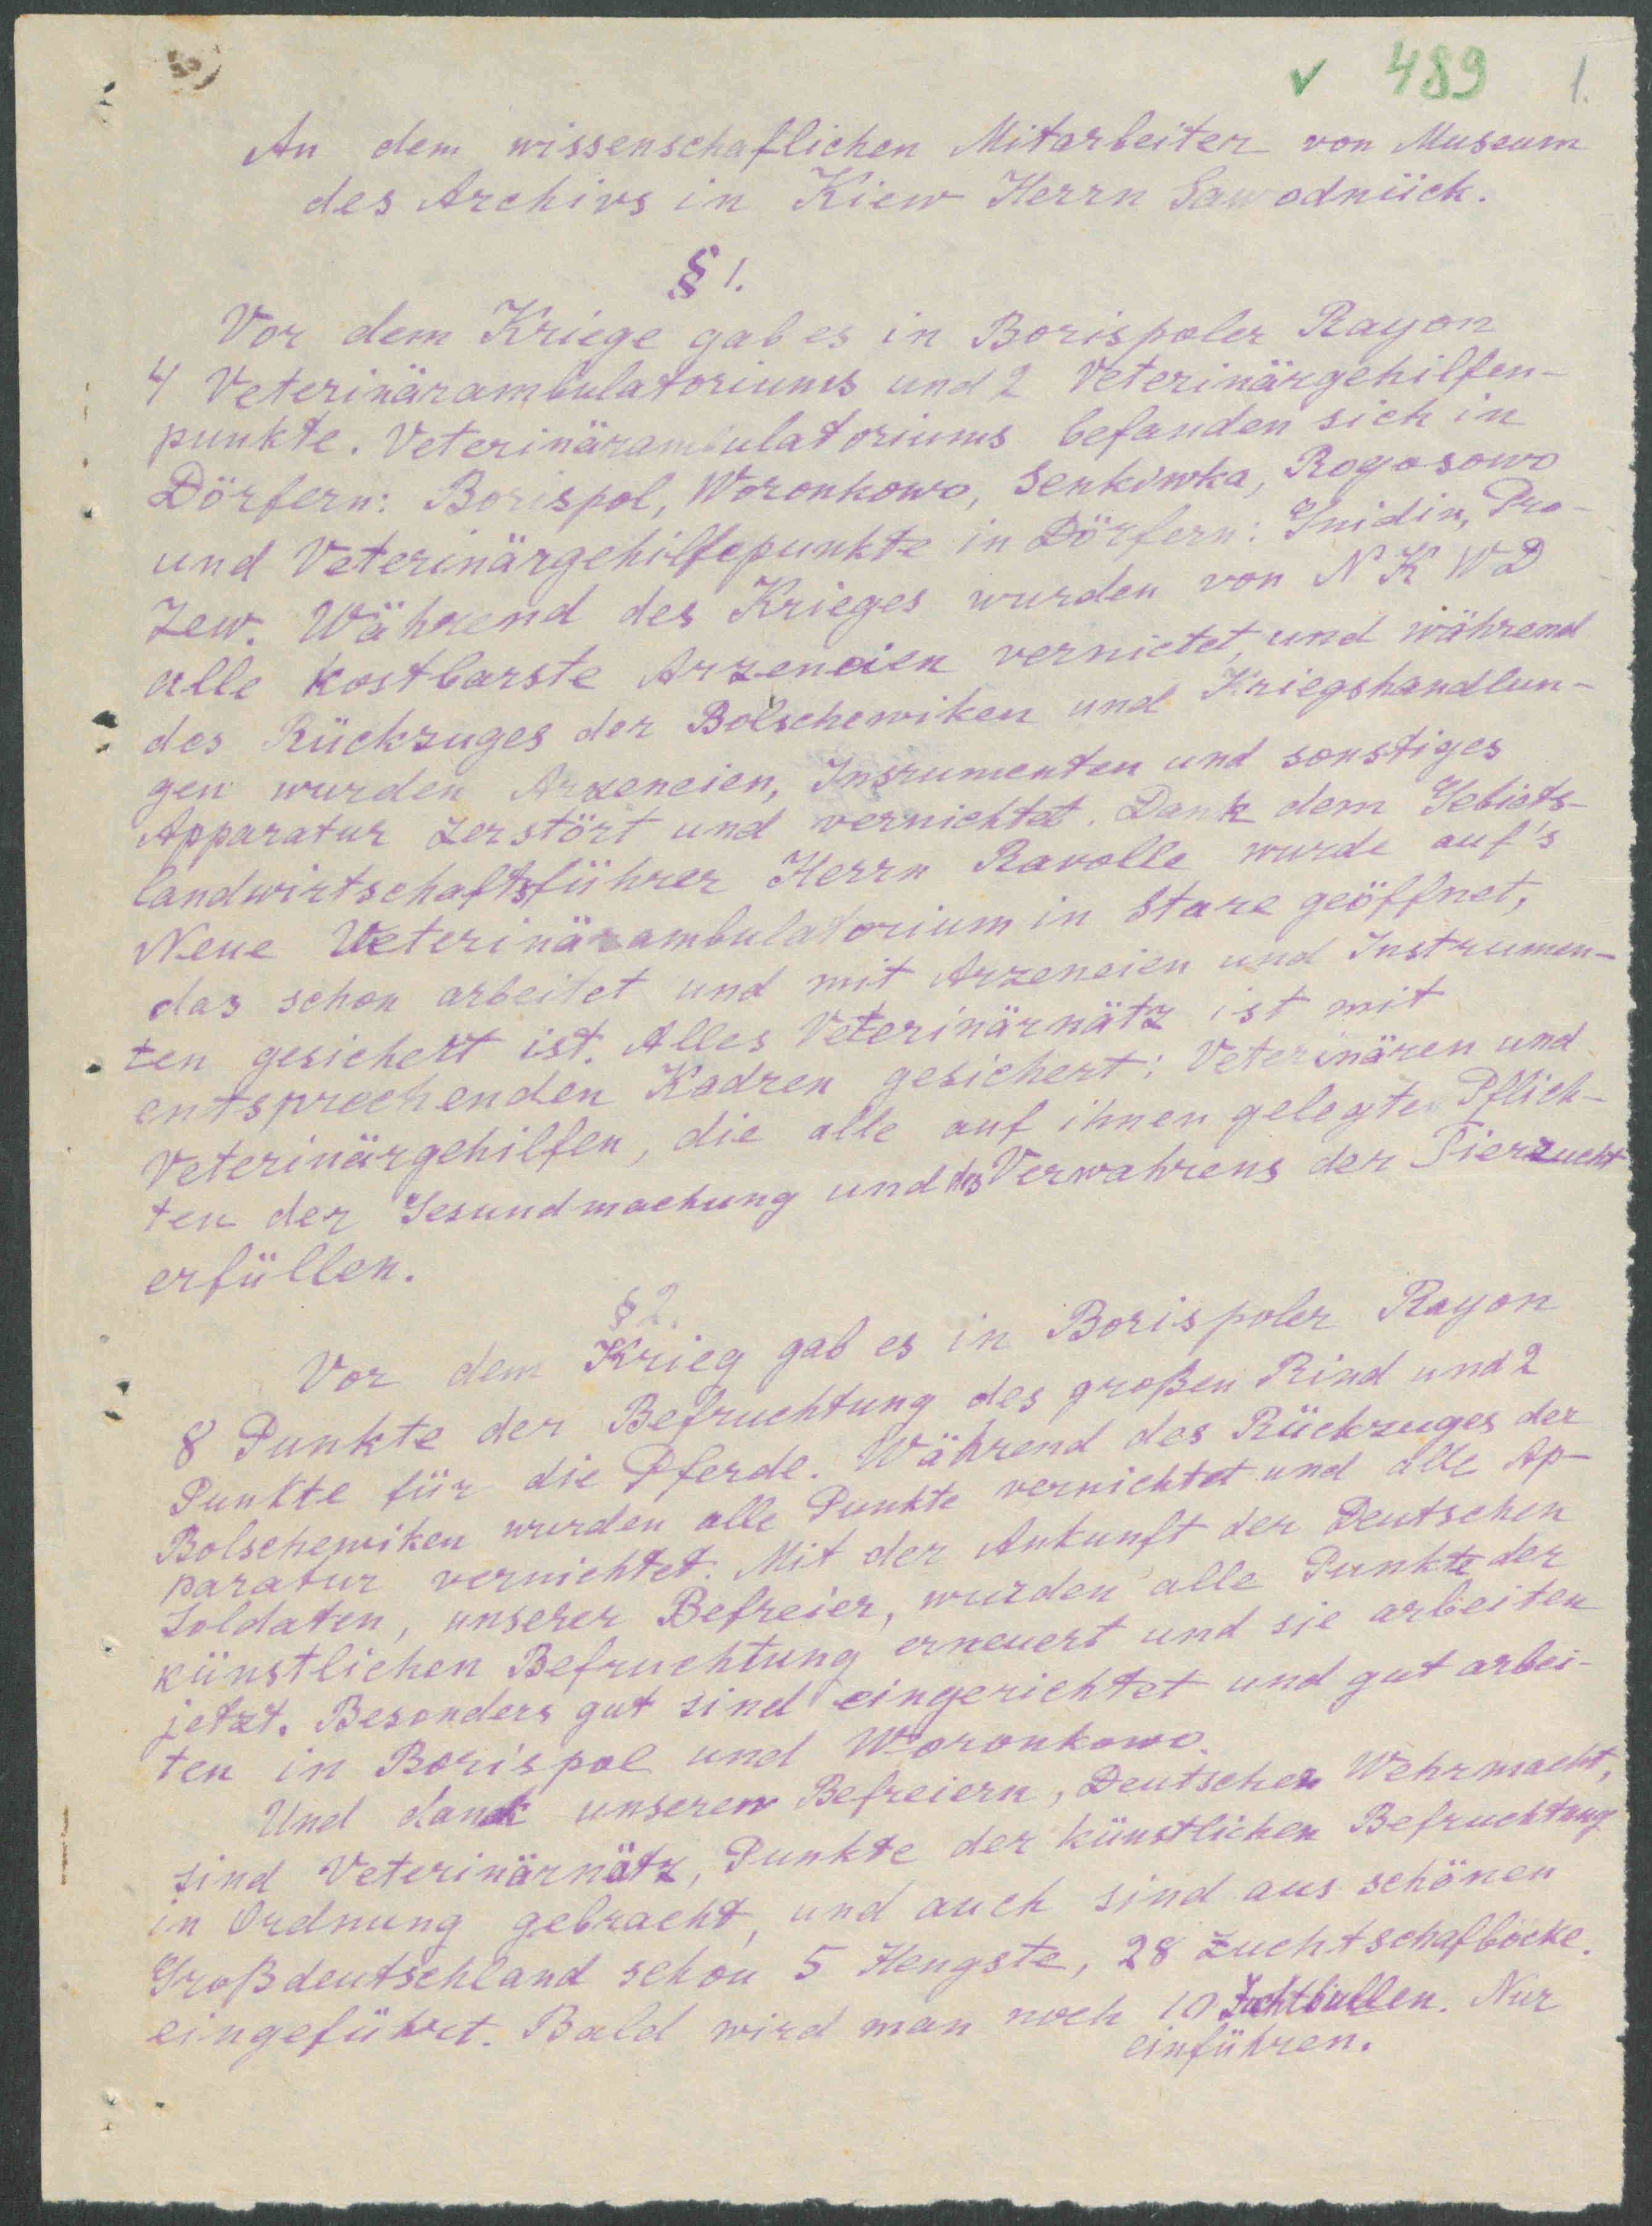 ✓ 489 1.
An dem wissenschaflichen Mitarbeiter von Museum
des Archivs in Kiew Herrn Sawodnück.
§ 1.
Vor dem Kriege gab es in Borispoler Rayon
4 Veterinärambulatoriums und 2 Veterinärgehilfen-
punkte. Veterinärambulatoriums befanden sich in
Dörfern: Borispol, Woronkowo, Senkiwka, Rogosowo
und Veterinärgehilfepunkte in Dörfern: Gnidin, Pro-
zew. Während des Krieges wurden von NKWD
alle kostbarste Arzeneien vernictet, und während
des Rückzuges der Bolschewiken und Kriegshandlun-
gen wurden Arzeneien, Insrumenten und sonstiges
Apparatur zerstört und vernichtet. Dank dem Gebiets-
landwirtschaftsführer Herrn Ravolle wurde auf's
Neue Veterinärambulatorium in Stare geöffnet,
das schon arbeitet und mit Arzeneien und Instrumen-
ten gesichert ist. Alles Veterinärnätz ist mit
entsprechenden Kadren gesichert: Veterinären und
Veterinärgehilfen, die alle auf ihnen gelegten Pflich-
ten der Gesundmachung und des Verwahrens der Tierzucht
erfüllen.
§ 2.
Vor dem Krieg gab es in Borispoler Rayon
8 Punkte der Befruchtung des großen Rind und 2
Punkte für die Pferde. Während des Rückzuges der
Bolschewiken wurden alle Punkte vernichtet und alle Ap-
paratur vernichtet. Mit der Ankunft der Deutschen
Soldaten, unserer Befreier, wurden alle Punkte der
künstlichen Befruchtung erneuert und sie arbeiten
jetzt. Besonders gut sind eingerichtet und gut arbei-
ten in Borispol und Woronkowo.
Und dank unseren Befreiern, Deutscher Wehrmacht,
sind Veterinärnätz, Punkte der künstlichen Befruchtung
in Ordnung gebracht, und auch sind aus schönen
Großdeutschland schon 5 Hengste, 28 Zuchtschafböcke
eingeführt. Bald wird man noch 10 Zuchtbullen. Nur
einführen.